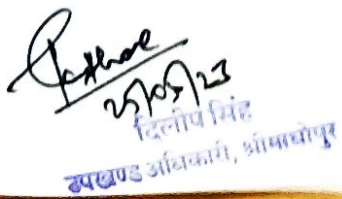 25/05/23
दिलीप सिंह
उपखण्ड अधिकारी, श्रीमाधोपुर